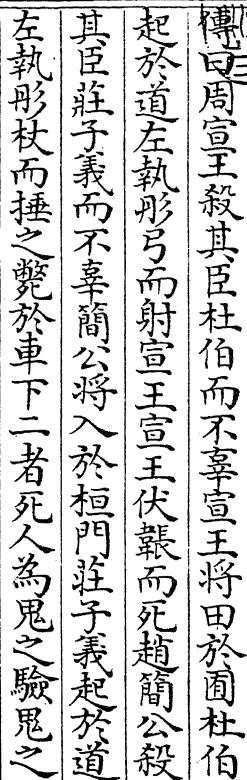 傳曰周宣王殺其臣杜伯而不辜宣王将田於囿杜伯
起於道左執彤弓而射宣王宣王伏韔而死趙簡公殺
其臣莊子義而不辜簡公将入於桓門莊子義起於道
左執彤杖而捶之斃於車下二者死人為鬼之驗鬼之